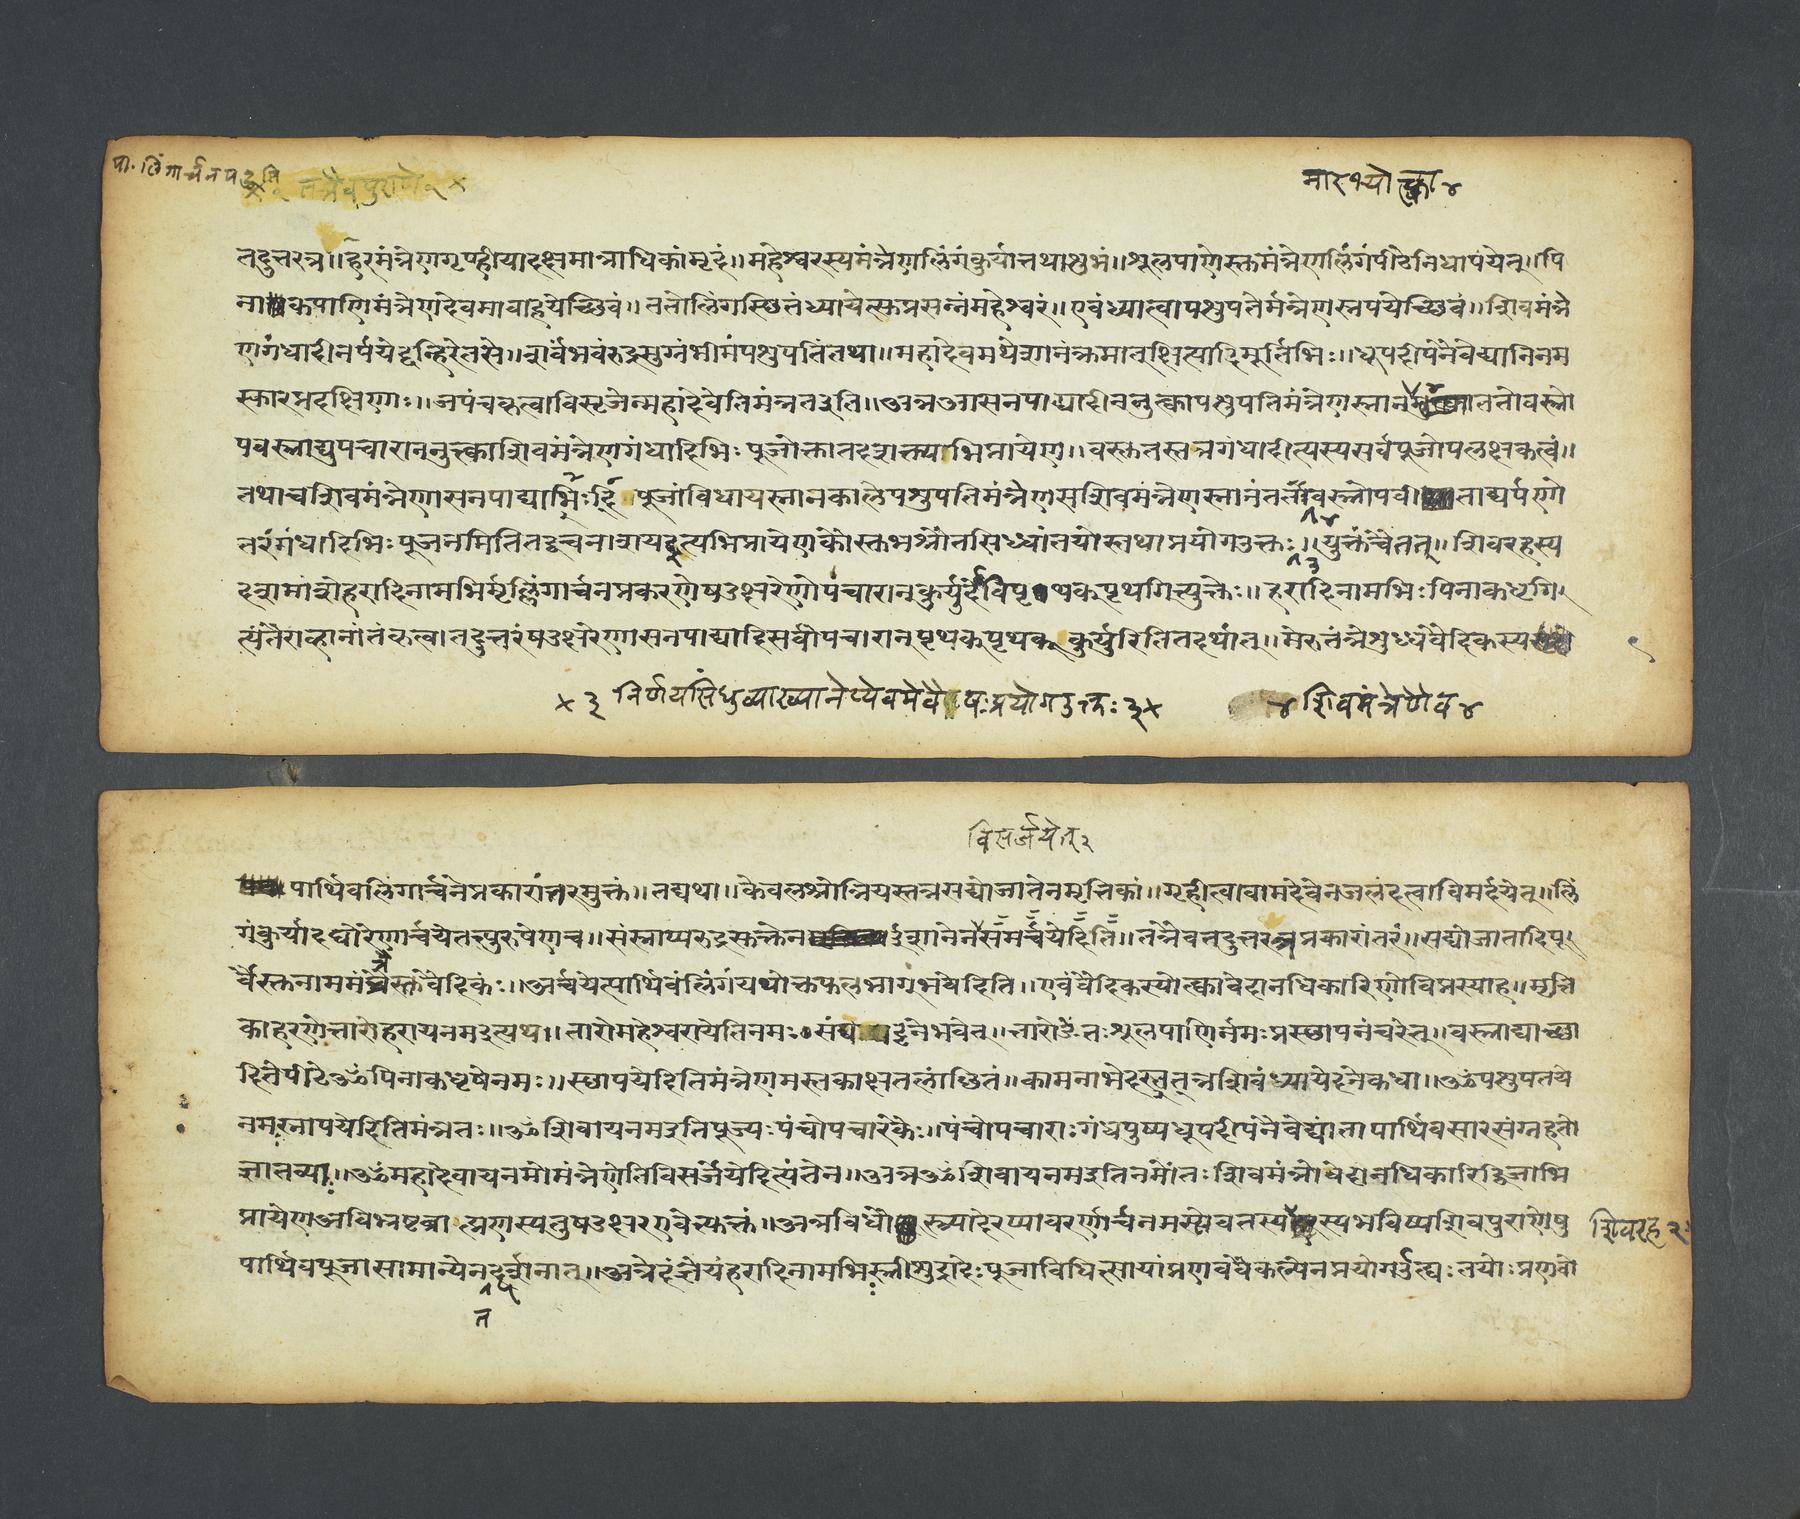 पा. लिंगार्चनपद्धति
तत्रैव पुराणे
मारभ्योत्का ४
तदुत्तरत्र।।हरमंत्रेणगृण्हीयादक्षमात्राधिकांमृदं।।महेश्वरस्यमंत्रेणलिंगंकुर्यात्तथाशुभं।।शूलपाणेस्तुमंत्रेणलिंगंपीठेनिधापयेत्।।पि
नाकपाणिमंत्रेणदेवमावाहयेच्छिवं।।ततोलिंगस्थितंध्यायेत्सुप्रसन्नंमहेश्वरं।।एवंध्यात्वापशुपतेर्मंत्रेणस्नपयेच्छिवं।।शिवमंत्रे
णगंधादीनर्पयेद्वन्हिरेतसे।।शर्वंभवंरुद्रमुग्रंभीमंपशुपतिंतथा।।महादेवमथेशानंक्रमात्क्षित्यादिमूर्तिभिः।।धूपदीपंनैवेद्यानिनम
स्कारप्रदक्षिणाः।।जपंचकृत्वाविसृजेन्महादेवेतिमंत्रतइति।।अत्रआसनपाद्यादीननुत्कापशुपतिमंत्रेणस्नान ततोवस्त्रो
पवस्त्राद्युपचाराननुत्काशिवमंत्रेणगंधादिभिःपूजोक्ता तदशक्त्याभिप्रायेण।।वस्तुतस्त्वत्रगंधादीत्यस्यसर्वपूजोपलक्षकत्वं।।
तथाचशिवमंत्रेणासनपाद्या पूजांविधायस्नानकालेपशुपतिमंत्रेणसशिवमंत्रेणस्नानंततोवस्त्रोपवी ताद्यर्पणे
त्तरंगंधादिभिःपूजनमिति कौस्तुभ तयोस्तथाप्रयोगउक्तः।।युक्तंचैतत्।।शिवरहस्य
दशमांशेहरादिनामभिर्मृल्लिंगार्चनप्रकरणेषडक्षरेणोपचारान्कुर्यु पृथक्पृथगित्युक्तेः।।हरादिनामभिःपिनाकधृगि
त्यंतैराव्हानांतंकृत्वा तदुत्तरंषडक्षरेणासनपाद्यादिसर्वोपचारान्पृथक्पृथक्कुर्युरितितदर्थात्।।मेरुतंत्रेशुध्यंवैदिकस्य
×३ निर्णयसिंधुव्याख्यानेप्येवमेवै षःप्रयोगउक्तः३×
४ शिवमंत्रेणैव४
विसर्जयेत्२
पार्थिवलिंगार्चनेप्रकारांतरमुक्तं।।तद्यथा।।केवलश्रोत्रियस्तत्रसद्योजातेनमृत्तिकां।।गृहीत्वावामदेवेनजलंदत्वाविमर्दयेत्।।लिं
गंकुर्यादघोरेणार्चयेतत्पुरुषेणच।।संस्नाप्यरुद्रसूक्तेन ईशानेनसमर्चयेदिति।।तत्रैवतदुत्तरत्रप्रकारांतरं।।सद्योजातादिपू
र्वैस्तुनाममंत्रैस्तुवैदिकः।।अर्चयेत्पार्थिवंलिंगंयथोक्तफलभाग्भवेदिति।।एवंवैदिकस्योत्कावेदानधिकारिणोविप्रस्याह।।मृत्ति
काहरणेतारोहरायनमइत्यथ।।तारोमहेश्वरायेतिनमः०संघ ट्टनेभवेत्।।तारों तःशूलपाणिर्नमःप्रस्थापनंचरेत्।।वस्त्राद्याच्छा
दितेपीठेॐपिनाकधृषेनमः।।स्थापयेदितिमंत्रेणमस्तकाक्षतलांछितं।।कामनाभेदस्तुतत्रशिवंध्यायेदनेकधा।।ॐपशुपतये
नमस्नापयेदितिमंत्रतः।।ॐशिवायनमइतिपूज्यःपंचोपचारकैः।।पंचोपचाराःगंधपुष्पधूपदीपनैवेद्यांतापार्थिवसारसंग्रहतो
ज्ञातव्याः।।ॐमहादेवायनमोमंत्रेणेतिविसर्जयेदित्यंतेन।।अत्रॐशिवायनमइतिनमोंतःशिवमंत्रोवेदानधिकारिद्विजाभि
प्रायेणअविभ्रष्टब्राह्मणस्यतुषडक्षरएवेत्युक्तं।।अत्रविधौ स्त्र्यादेरप्यावरणार्चनमस्त्येवतस्य स्यभविष्यशिवपुराणेषु
शिवरह२
पार्थिवपूजासामान्येनदर्शनात्।।अत्रेदंज्ञेयंहरादिनामभिस्त्रीशूद्रादेःपूजाविधित्सायांप्रणववैकल्पेनप्रयोग तयोःप्रणवो
त